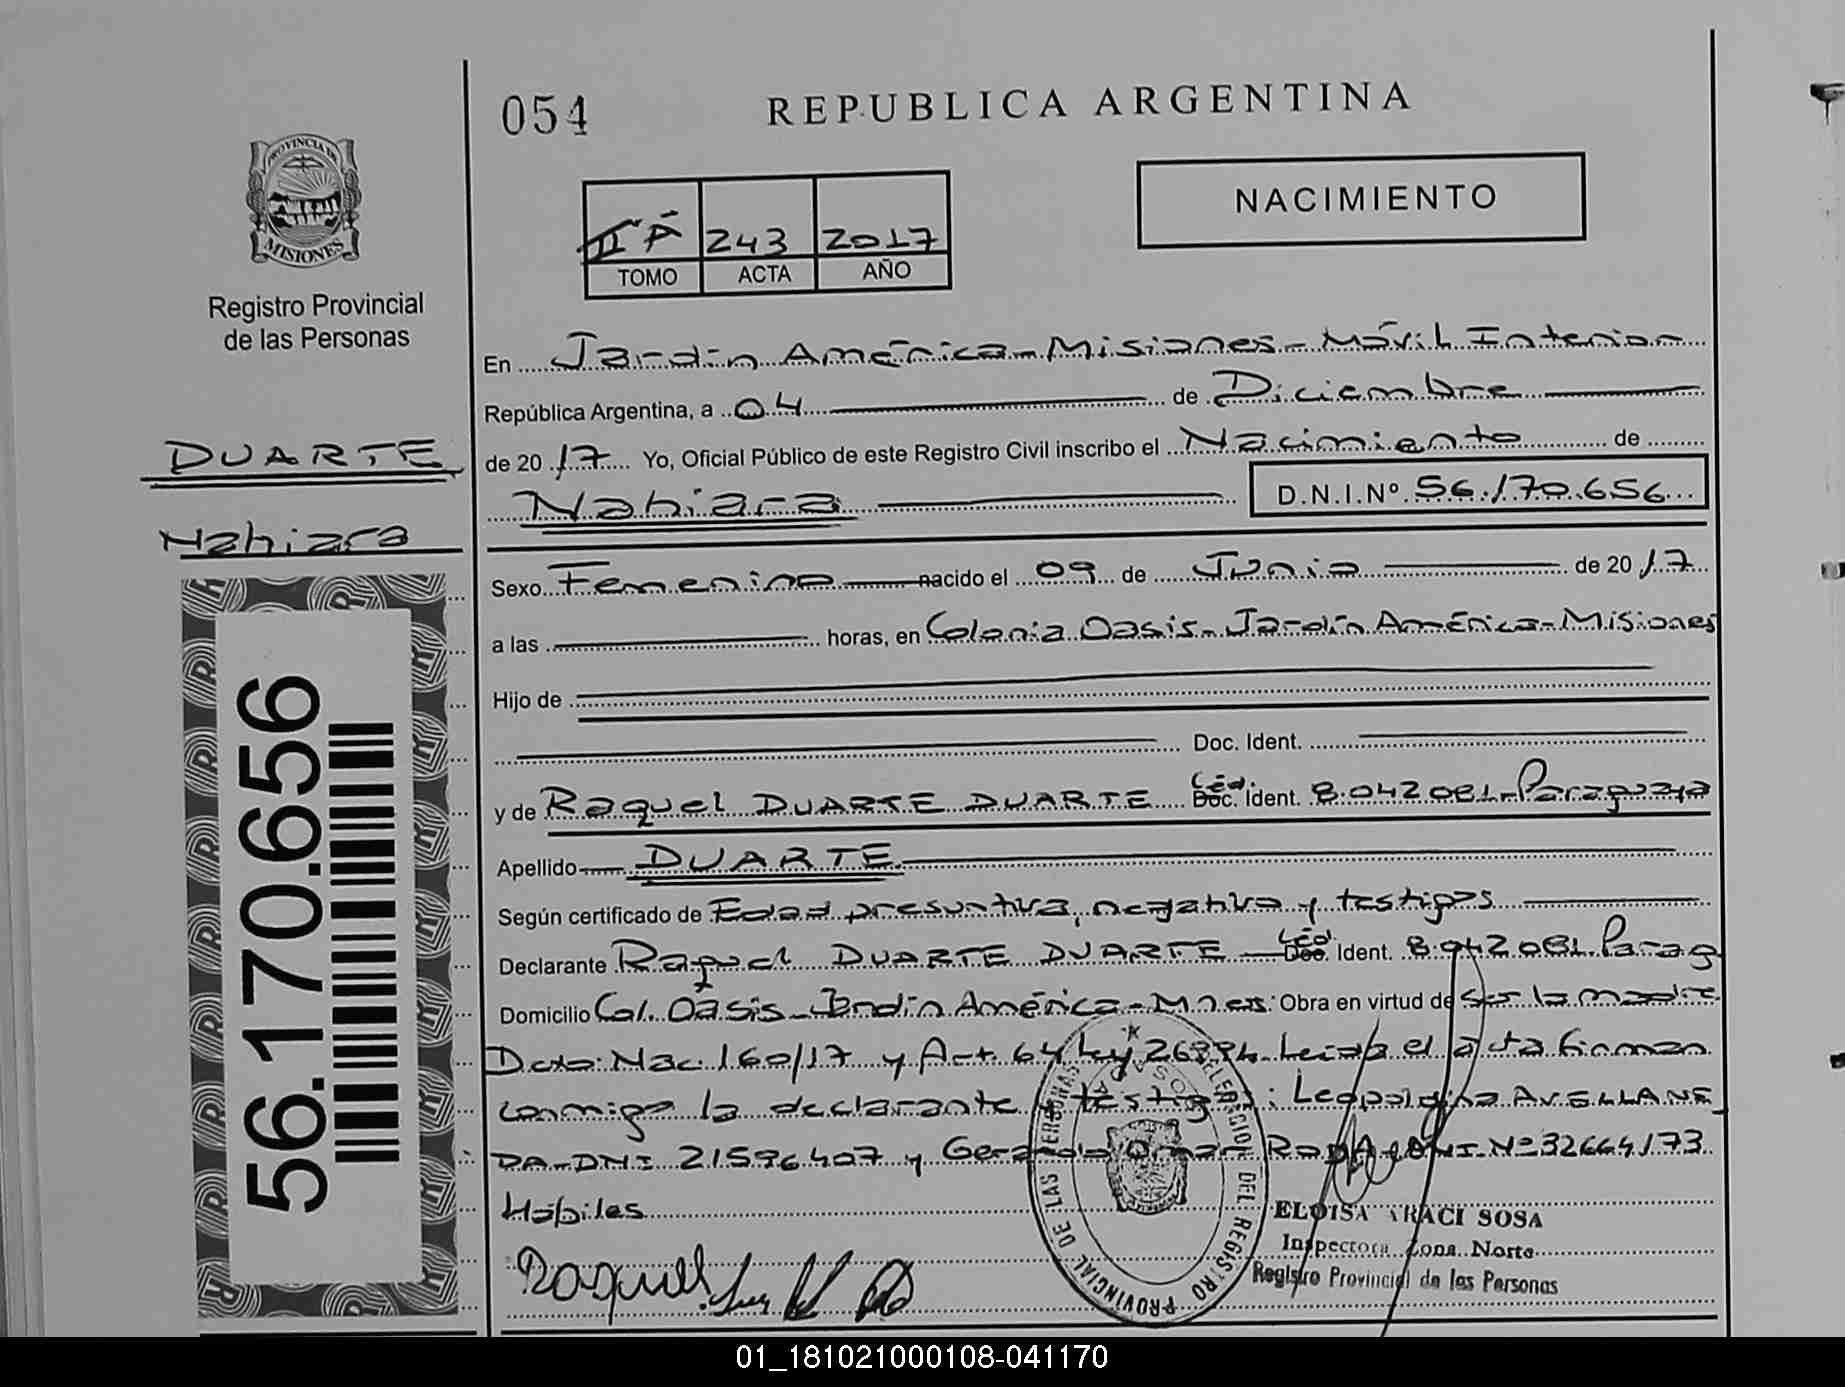 054
REPUBLICA ARGENTINA
PROVINCIA DE
MISIONES
Registro Provincial
de las Personas
NACIMIENTO
II A 243 2017
TOMO ACTA AÑO
DUARTE
Nahiara
56.170.656
En Jardín América - Misiones - Móvil Interior
República Argentina, a 04 de Diciembre
de 2017 Yo, Oficial Público de este Registro Civil inscribo el Nacimiento de
Nahiara D.N.I.Nº 56.170.656
Sexo Femenino nacido el 09 de Junio de 2017
a las horas, en Colonia Oasis - Jardín América - Misiones
Hijo de
Doc. Ident.
y de Raquel DUARTE DUARTE Céd. Doc. Ident. 8.042.081 - Paraguaya
Apellido DUARTE
Según certificado de Edad presuntiva, negativa y testigos
Declarante Raquel DUARTE DUARTE Céd. Doc. Ident. 8.042.081 Parag
Domicilio Col. Oasis - Jardín América - Mnes. Obra en virtud de ser la madre
Dcto. Nac. 160/17 y Art. 64 Ley Leida el acta firman
conmigo la declarante y testigos: Leopoldina AVELLANE
DA - DNI 21596407 y Gerardo Omar DNI Nº 32664173
Hábiles
Raquel
REGISTRO PROVINCIAL DE LAS PERSONAS
ELOISA ARACI SOSA
Inspectora Zona Norte
Registro Provincial de las Personas
01_181021000108-041170